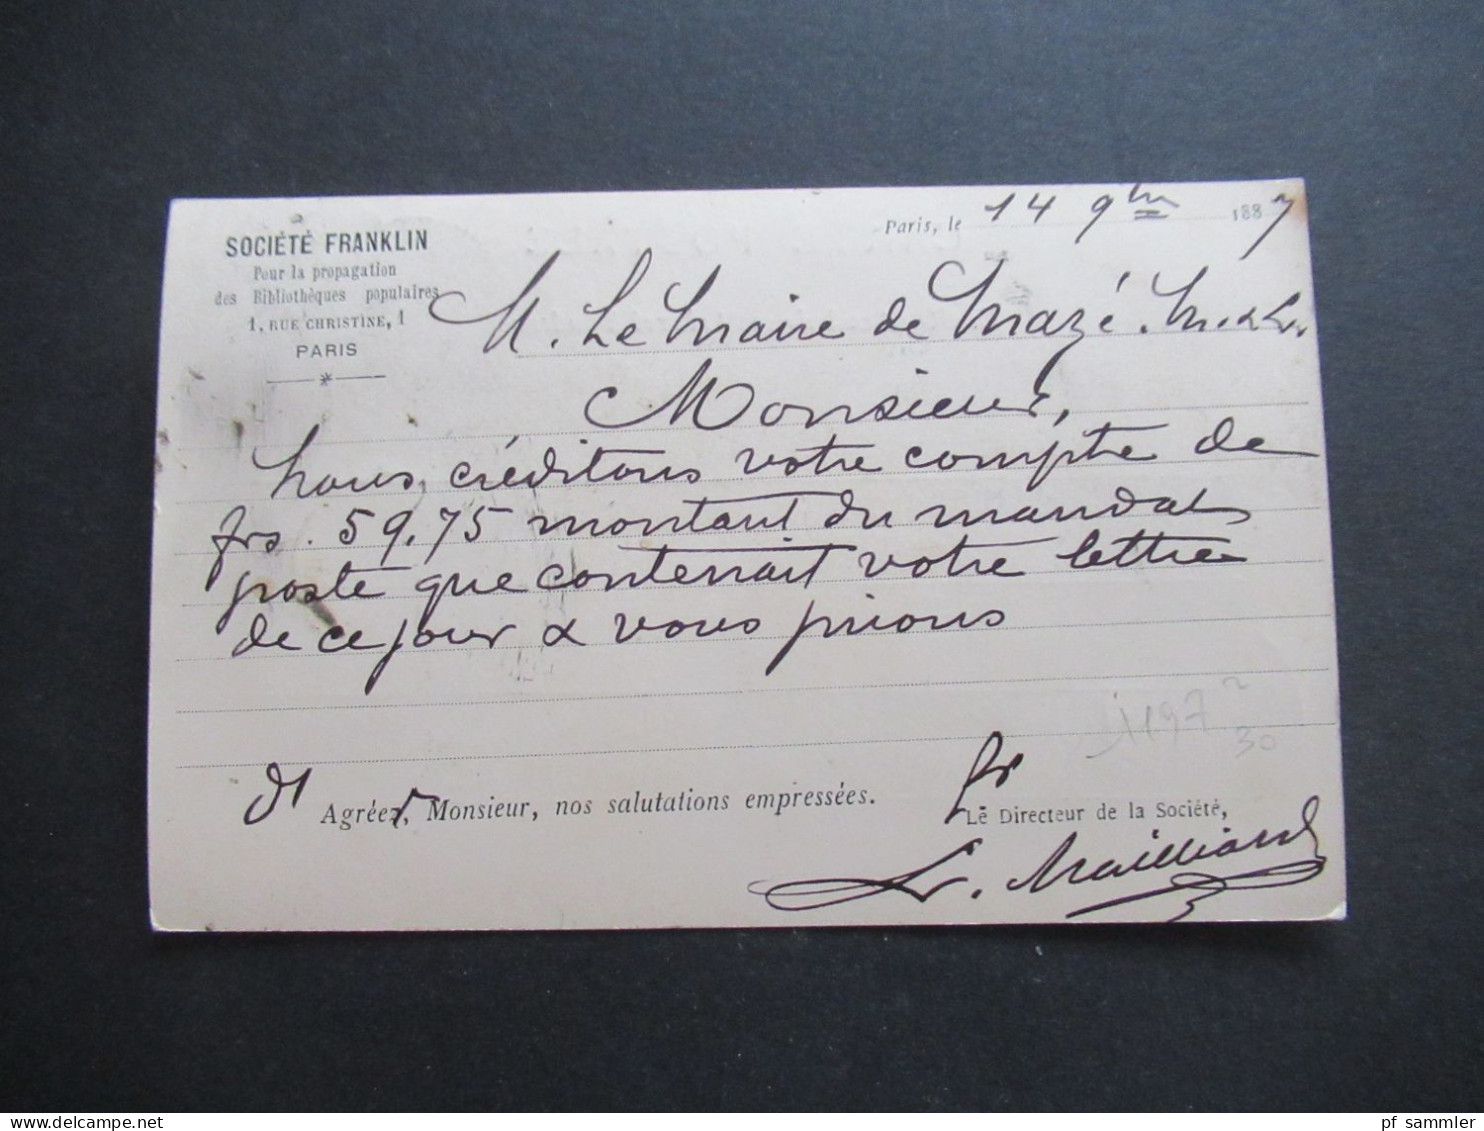 SOCIÉTÉ FRANKLIN
Pour la propagation
des Bibliothèques populaires
1, RUE CHRISTINE, 1
PARIS
Paris, le 14 9bre 1887
M. Le Maire de Mazé. M. & L.
Monsieur,
nous créditons votre compte de
frs. 59.75 montant du mandat
poste que contenait votre lettre
de ce jour & vous prions
d' Agréer, Monsieur, nos salutations empressées.
Pr
Le Directeur de la Société,
L. Mailliard
1197
30
pf sammler
www.delcampe.net